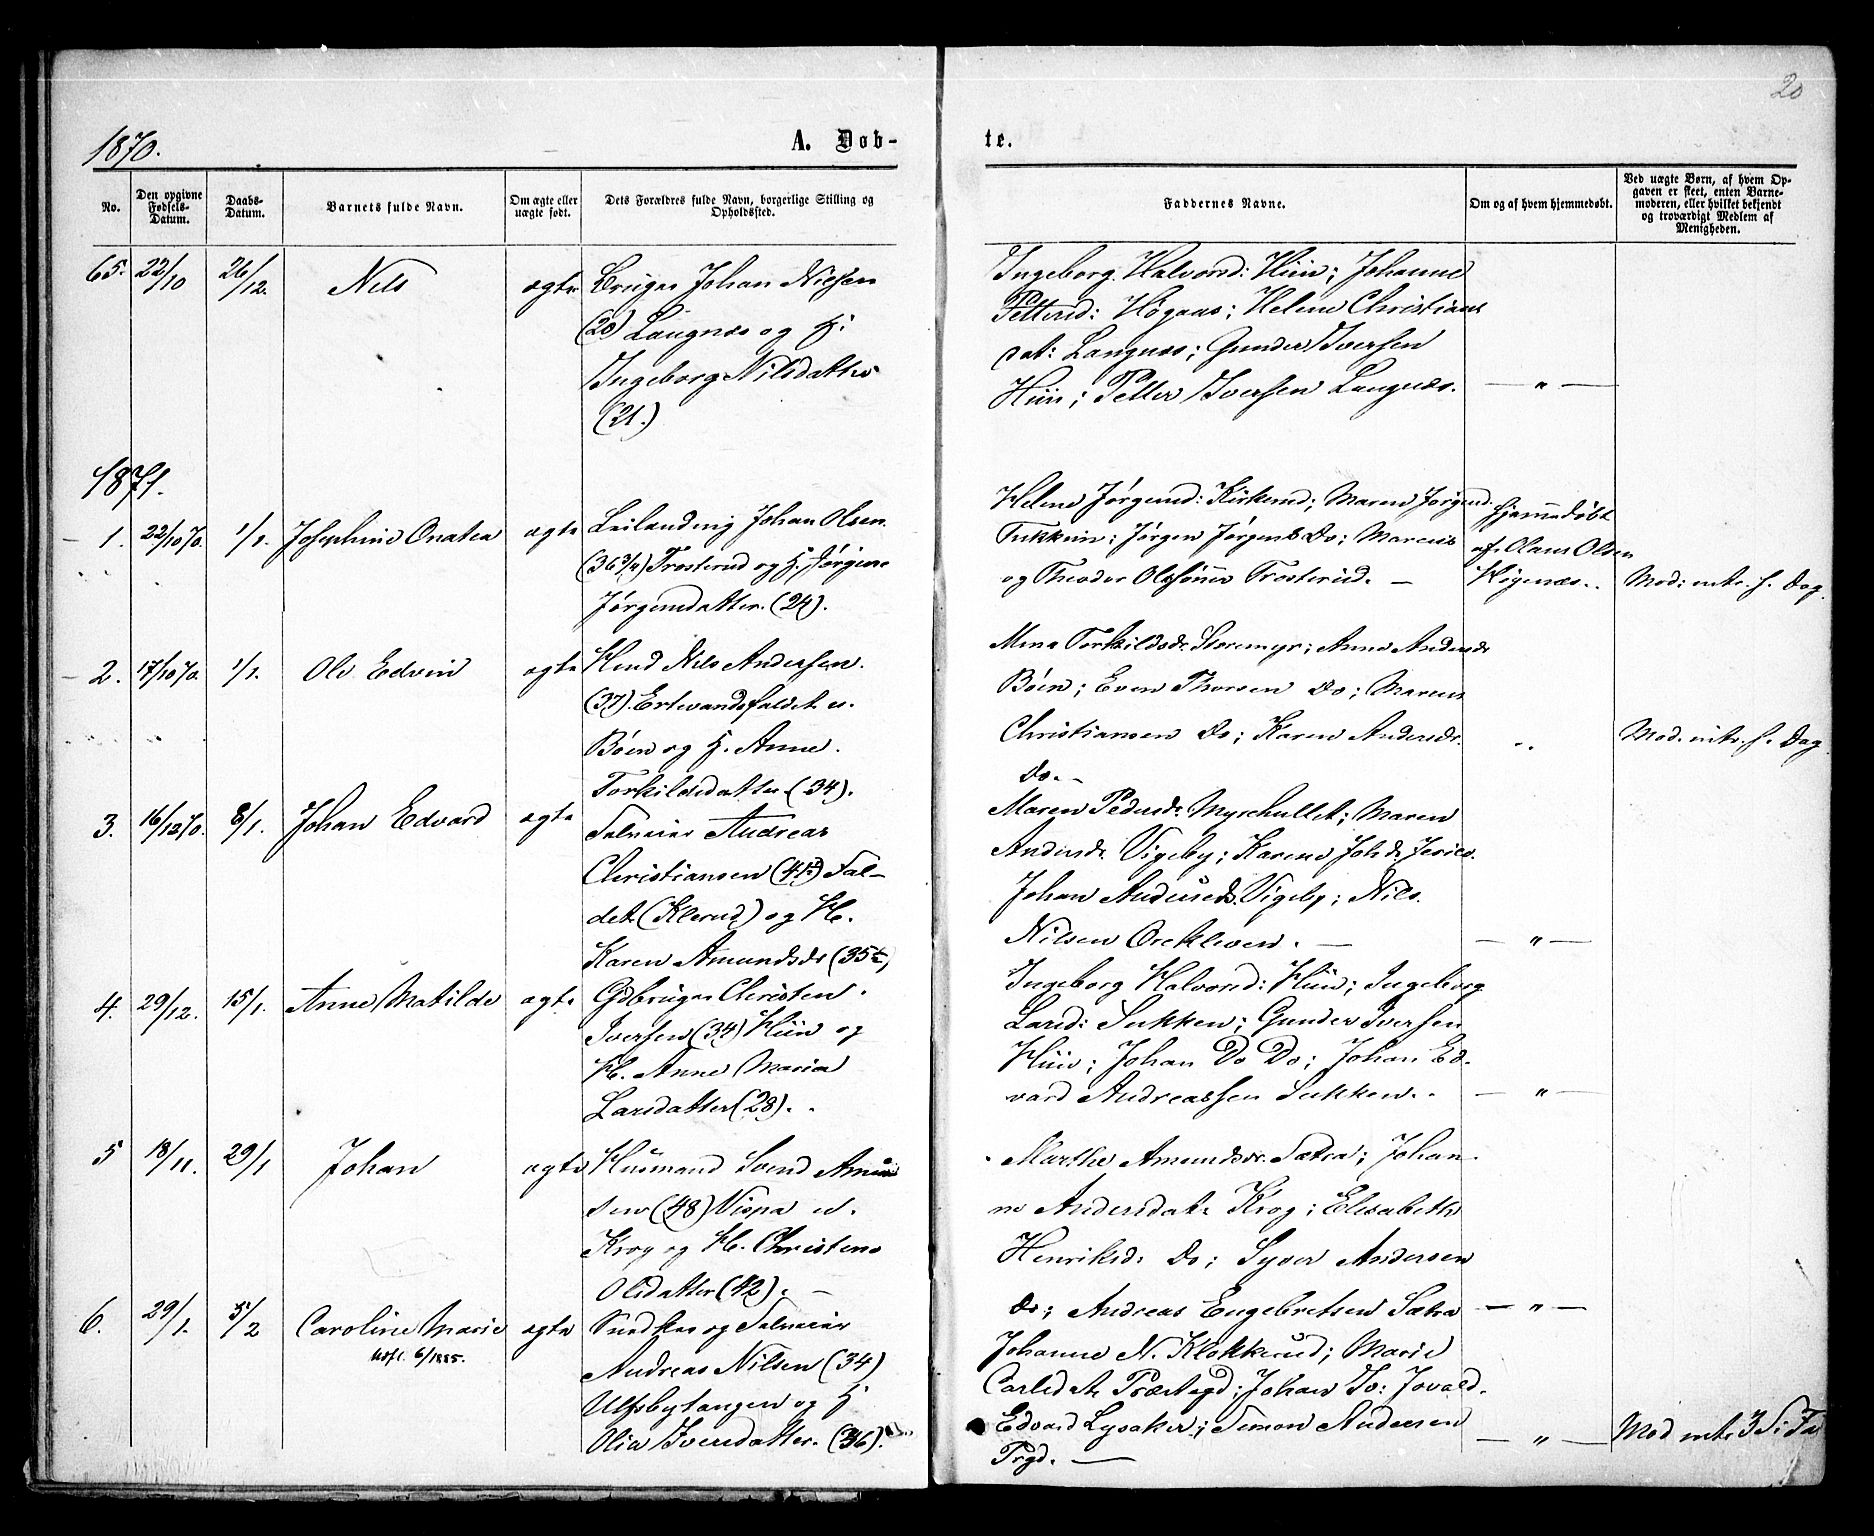 20
1870.
A. Døb-
te.
No.
Den opgivne Fødsels-Datum.
Daabs-Datum.
Barnets fulde Navn.
Om ægte eller uægte født.
Dets Forældres fulde Navn, borgerlige Stilling og Opholdssted.
Faddernes Navne.
Om og af hvem hjemmedøbt.
Ved uægte Børn, af hvem Opgaven er skeet, enten Barnemoderen, eller hvilket bekjendt og troværdigt Medlem af Menigheden.
65. 22/10 26/12. Nils ægte Bruger Johan Nielsen
(20) Langnæs og H.
Ingeborg Nilsdatter
(21.)
Ingeborg Halvorsd: Hiin; Johanne
Petterd: Høgaas; Helene Christians
dat: Langnæs; Gunder Iversen
Hiin; Petter Iversen Langnæs. — " —
1871.
1. 22/10 70. 1/1. Josephine Onatea ægte Leilænding Johan Olsen
(36 3/4) Trosterud og H. Jørgine
Jørgensdatter. (24).
Helene Jørgensd: Kirkerud; Maren Jørgensd:
Tukkun; Jørgen Jørgens Do; Marcus
og Theodor Olssønner Trosterud. —
Hjemmedøbt
af Olaus Olsen
Høgenæs..
Mod: intr. s. Dag.
2. 17/10 70. 1/1. Ole Edvin ægte Hmd Nils Andersen.
(37). Ertevandsfaldet u.
Bøen og H. Anne.
Torkildsdatter (34).
Mina Torkildsdr. Storemyr; Anne Andersdr
Bøen; Even Thorsen Do; Maren
Christiansen Do; Karen Andersdr.
Do. -
Mod. intr. s. Dag
3. 16/12 70. 8/1. Johan Edvard ægte Selveier Andreas
Christiansen (41) Fal-
det (Klerud) og H.
Karen Amundsdr (35
Maren Pedersdr. Myrehullet; Maren
Andersdr. Vigeby; Karen Johsdr.
Johan Vigeby; Nils
Nilsen Orekleven. — — " —
4. 29/12. 15/1. Anne Matilde ægte Gdbruger Christen
Iversen (34) Hiin og
H. Anne Maria
Larsdatter (28). .
Ingeborg Halvorsd: Hiin; Ingeborg
Larsd: Sukken; Gunder Iversen
Hiin; Johan Do Do; Johan Ed-
vard Andreassen Sukken. . — " —
5 18/11. 29/1 Johan ægte Husmand Svend Amun
sen (48) Vispa u.
Krog og H. Christene
Olsdatter (42). —
Marthe Amundsdr. Sætra; Johan-
ne Andersdatr Krog; Elisabeth
Henriksd: Do; Syver Andersen
Do; Andreas Engebretsen Sætra — " —
6. 29/1. 5/2 Caroline Marie ægte Snedker og Selveier
Udfl. 6/1885.
Andreas Nilsen (34)
Ulfsbytangen og H
Olia Iversdatter. (36).
Johanne N. Klokkerud; Marie
Carlsdatr Præstegd; Johan Jo:
Edvard Lysaker; Simon Andersen
Prgd. — — " — Mod intr 3 S. i Fa